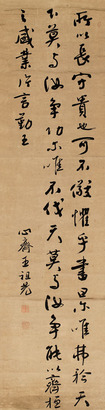 所以長守貴也可不儆懼乎書曰汝唯弗矜天
下莫與汝爭功汝唯不伐天莫與汝爭能以齊桓
之盛業片言勤王
心齋王祖光